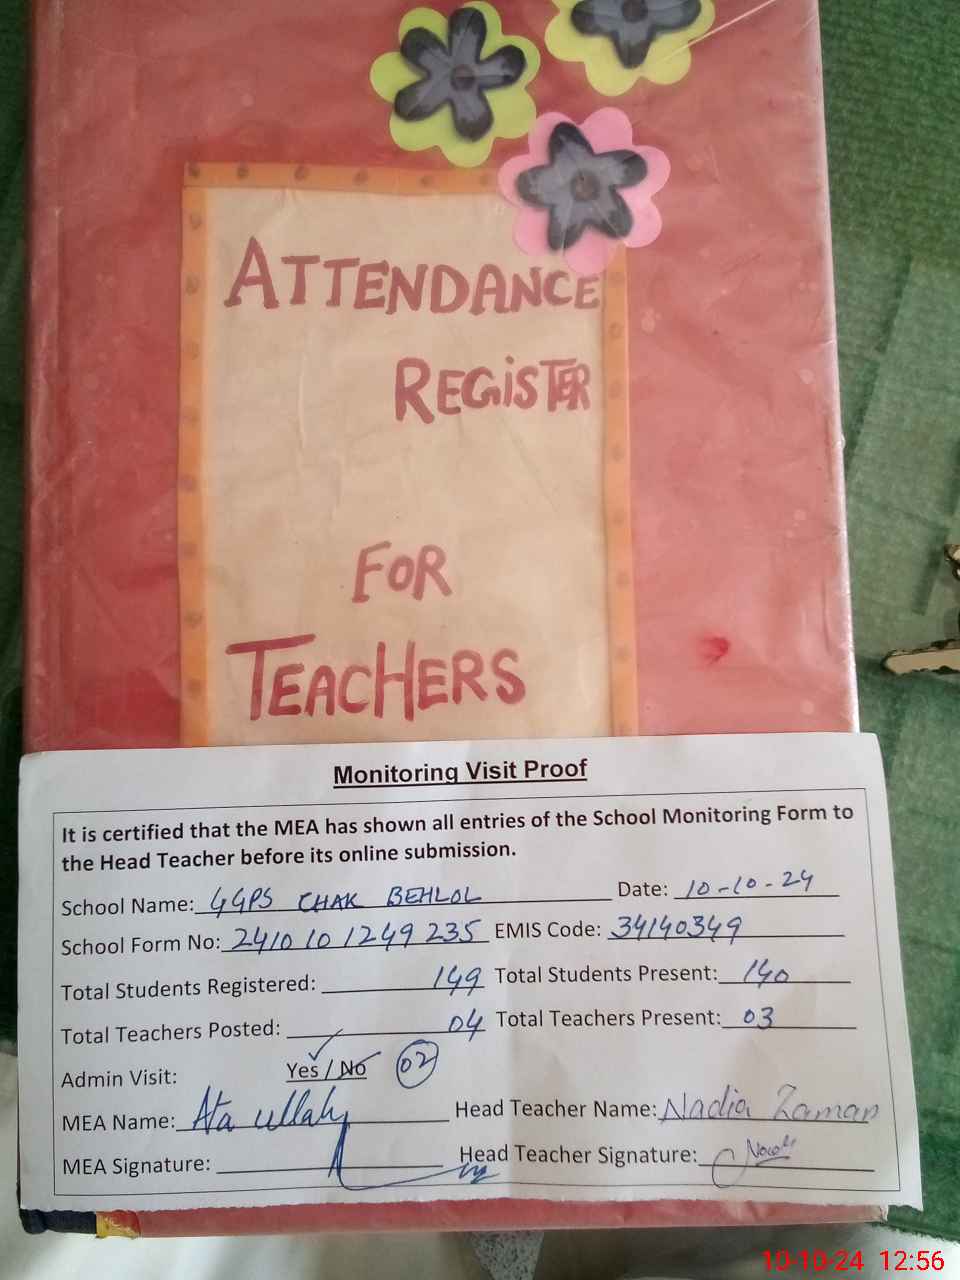 ATTENDANCE
REGISTER
FOR
TEACHERS
Monitoring Visit Proof
It is certified that the MEA has shown all entries of the School Monitoring Form to
the Head Teacher before its online submission.
School Name: GGPS CHAK BEHLOL Date: 10-10-24
School Form No: 2410 10 1249 235 EMIS Code: 34140349
Total Students Registered: 149 Total Students Present: 140
Total Teachers Posted: 04 Total Teachers Present: 03
Admin Visit: Yes / No 02
MEA Name: Ata ullah Head Teacher Name: Nadia Zaman
MEA Signature: Head Teacher Signature:
10-10-24 12:56